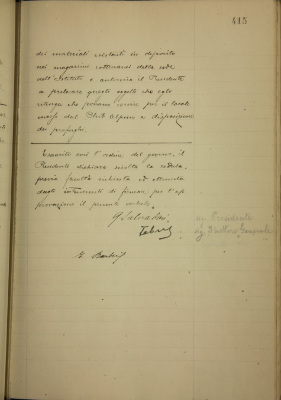 415
dei materiali esistenti in deposito
nei magazzini sotterranei della sede
dell'Istituto e autorizza il Presidente
a prelevare quegli oggetti che egli
ritenga che possano servire per il locale
messo dal Club Alpino a disposizione
dei profughi.
Esaurito così l'ordine del giorno, il
Presidente dichiara sciolta la seduta,
previa facoltà
due intervenuti di firmare, per l'ap
provazione il presente verbale.
G. Salvadori
Presidente